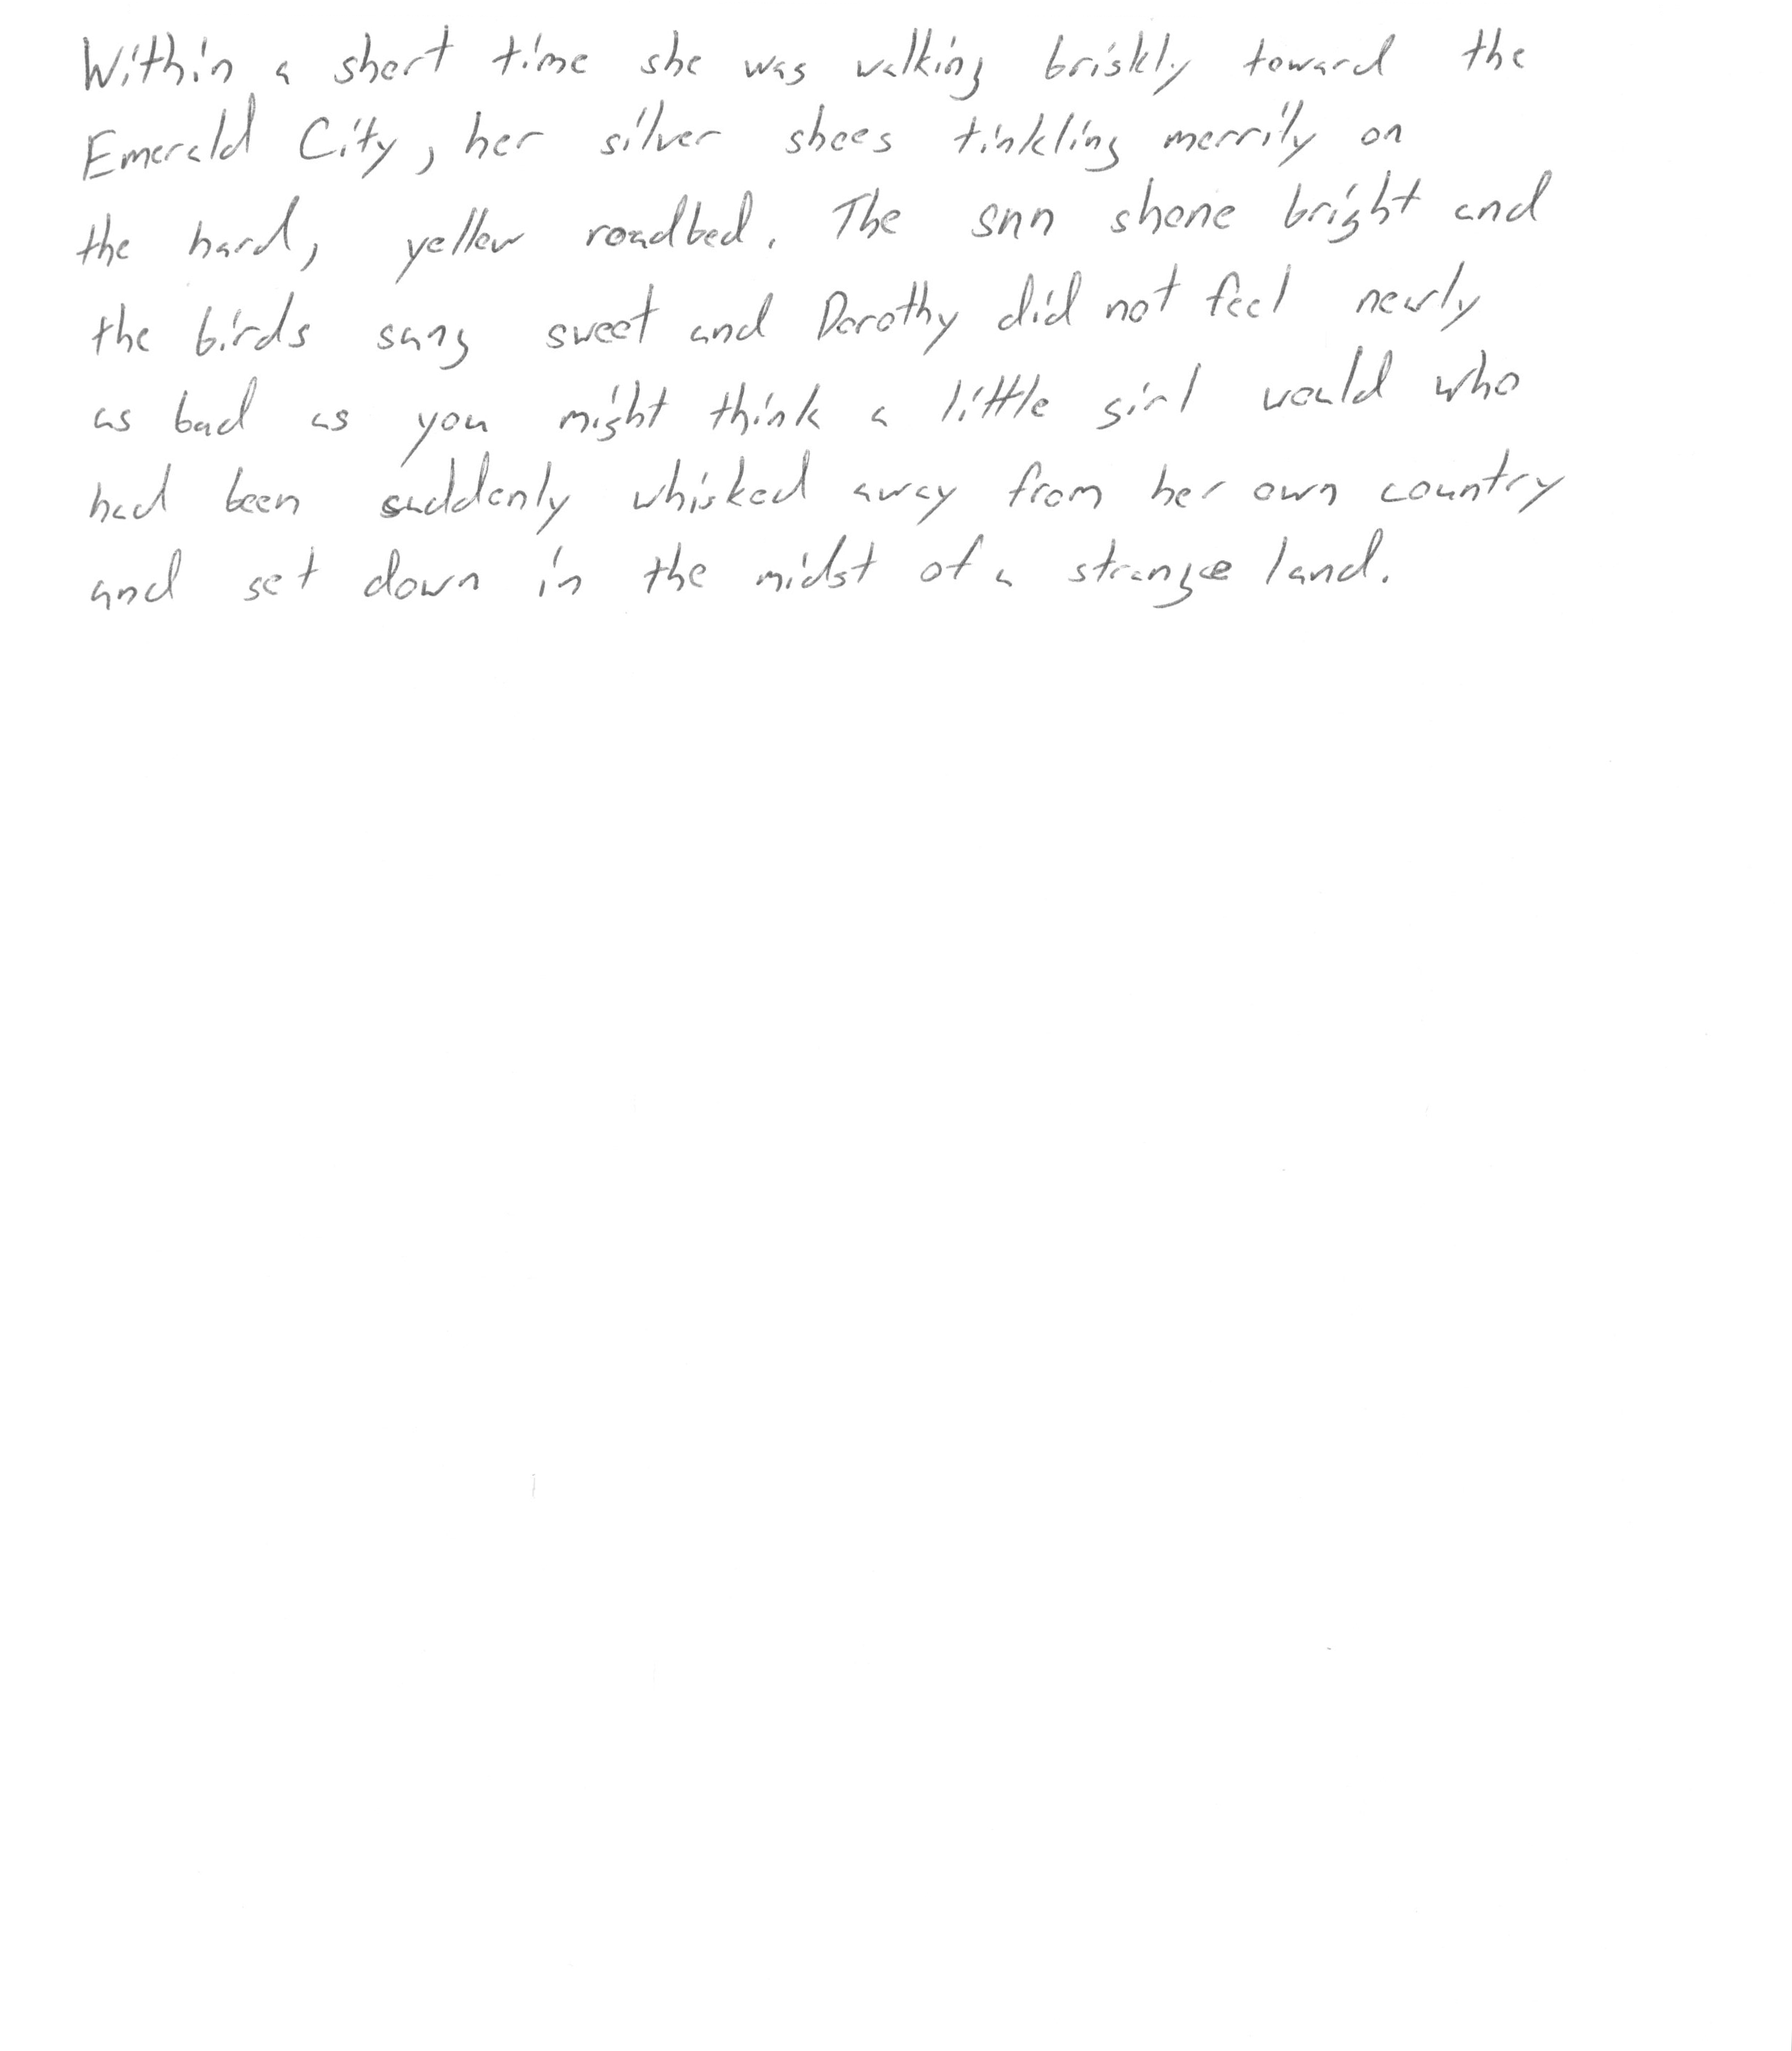 Within a short time she was walking briskly toward the
Emerald City, her silver shoes tinkling merrily on
the hard, yellow roadbed. The sun shone bright and
the birds sang sweet and Dorothy did not feel nearly
as bad as you might think a little girl would who
had been suddenly whisked away from her own country
and set down in the midst of a strange land.